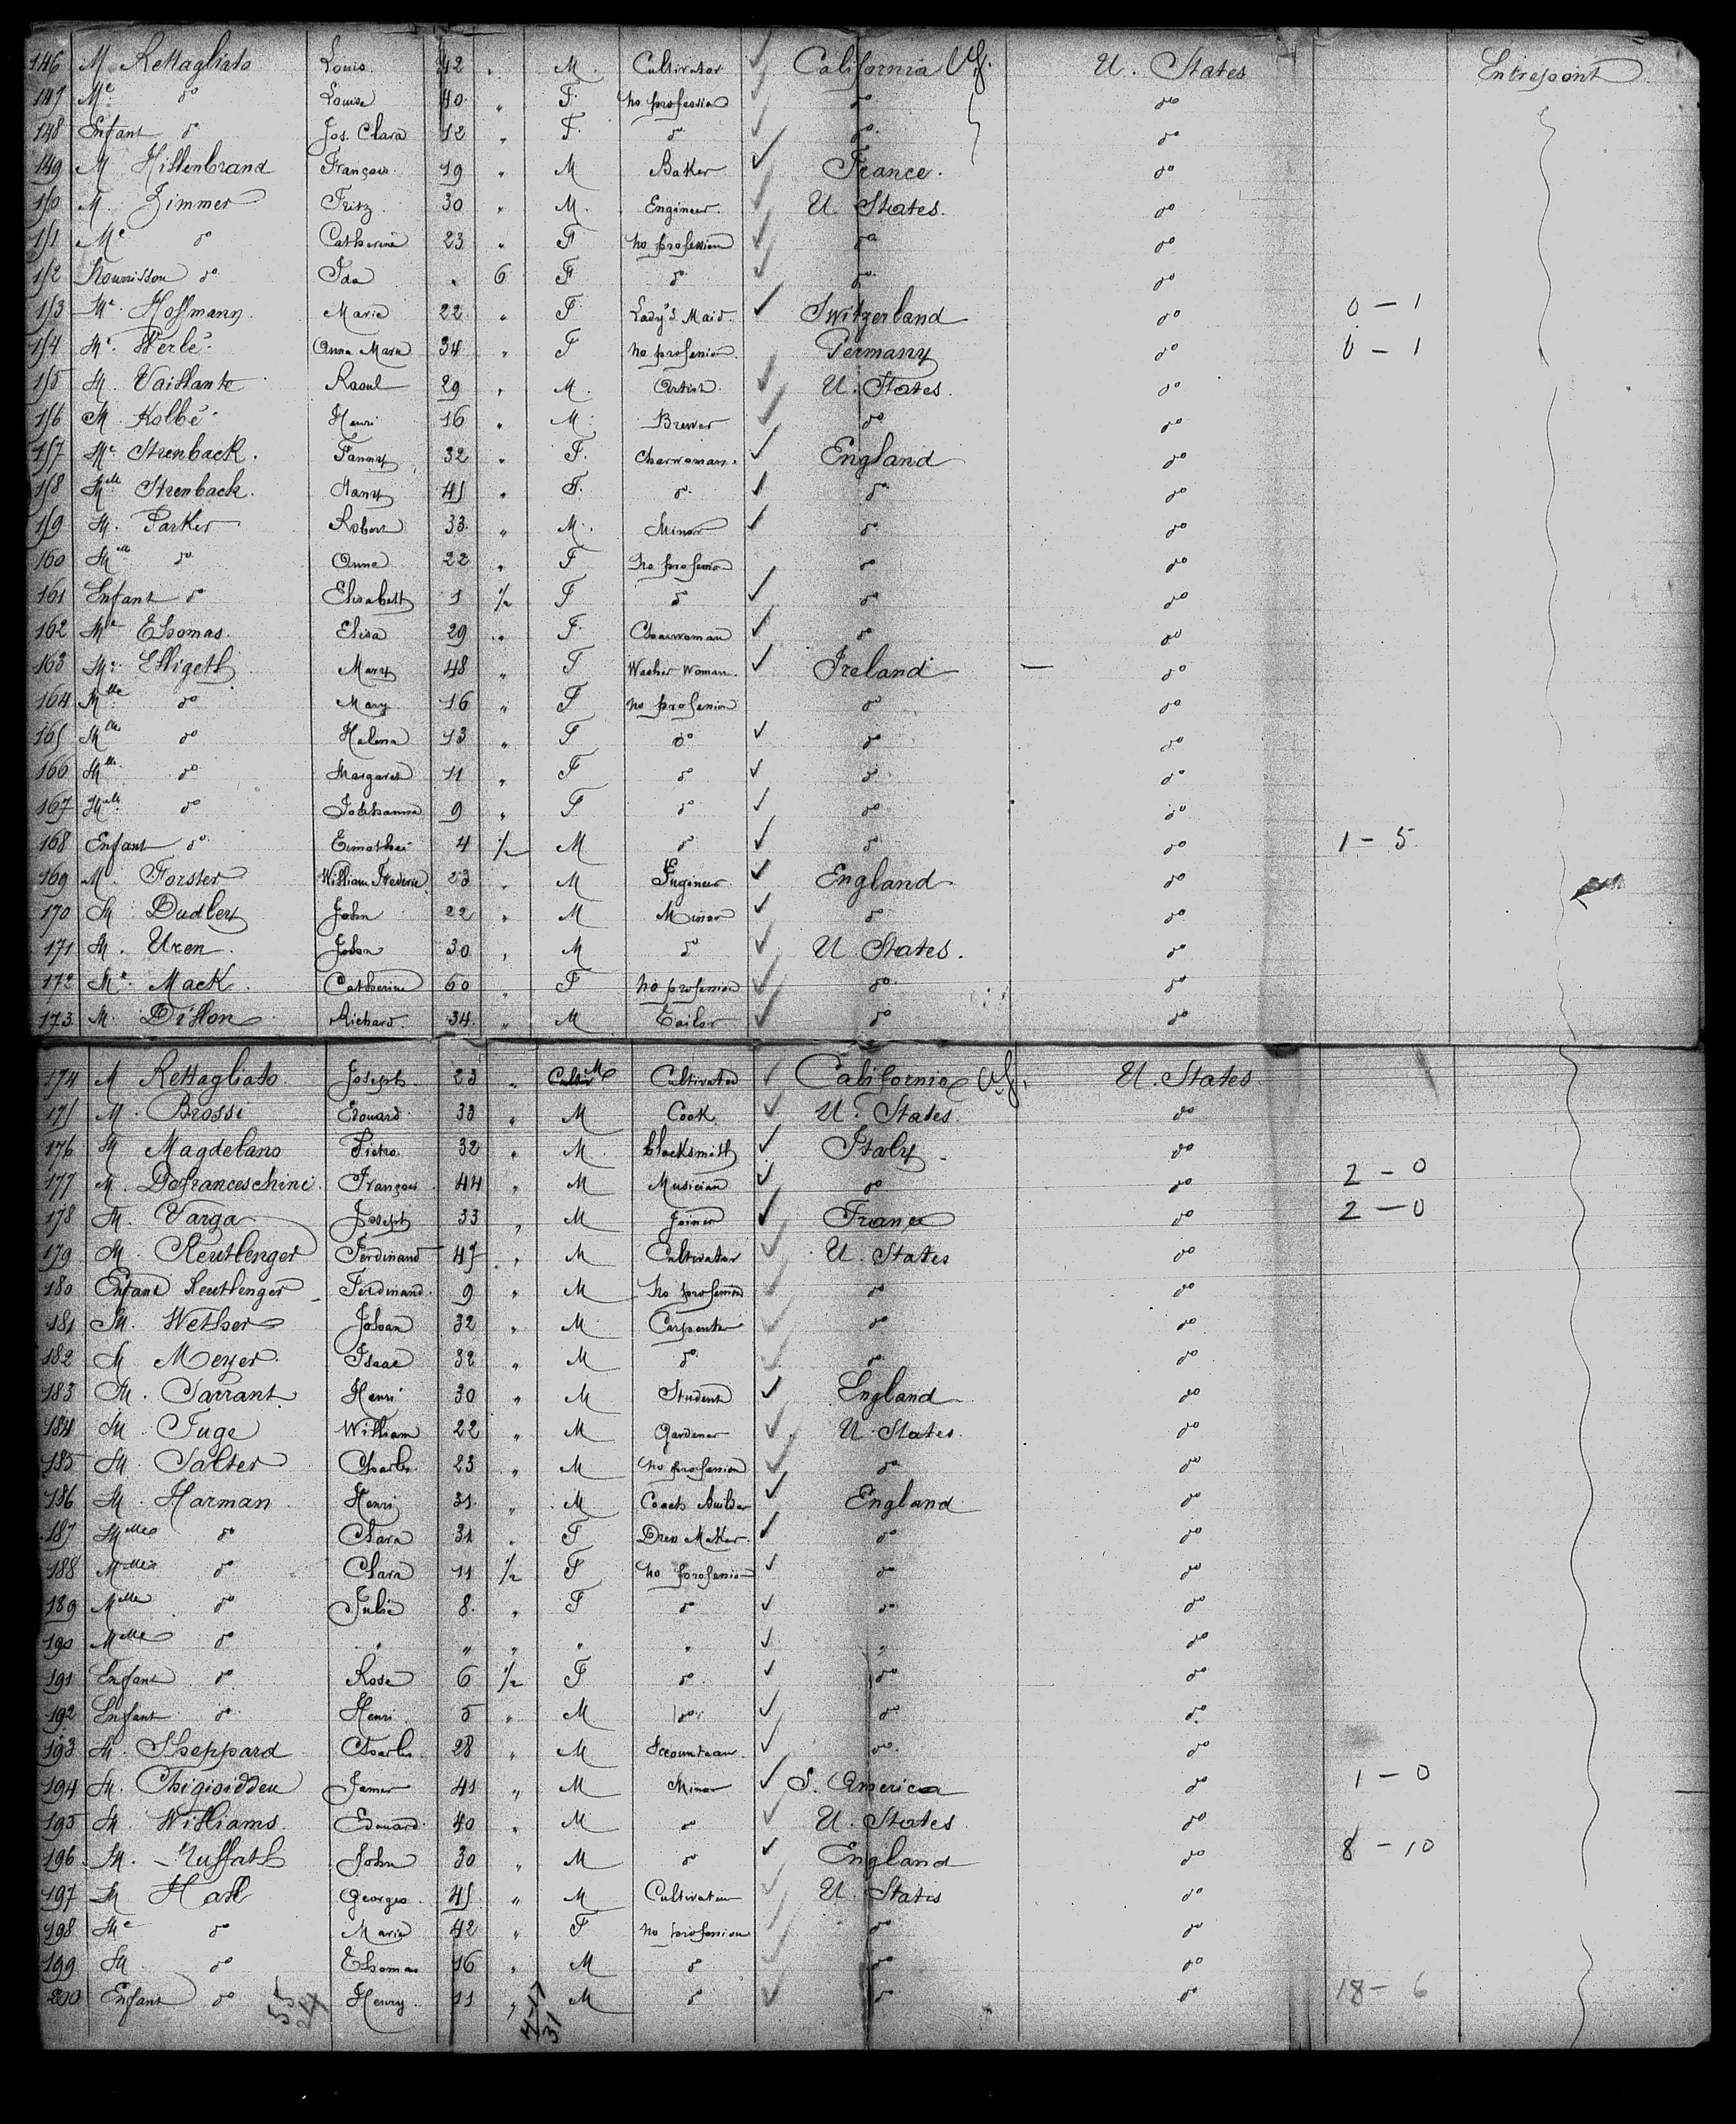 146 M Rettagliato Louis 42 " M. Cultivator California U. States Entrepont
147 Me do Louise 40 " F. no profession do do
148 Enfant do Jos. Clara 12 " F. do do do
149 M Hillenbrand François 19 " M Baker France. do
150 M. Zimmer Fritz 30 " M. Engineer U States. do
151 Me do Catherine 23 " F no profession do do
152 Nourrisson do Ida " 6 F do do do
153 Me. Hoffmann Marie 22 " F Lady's Maid Switzerland do 0 - 1
154 Me. Werlé Anna Maria 34 " F no profession Germany do 0 - 1
155 M. Vaillante Raoul 29 " M. Artist U. States. do
156 M. Kolbé Henri 16 " M. Brewer do do
157 Me Strenback. Fanny 32 " F. Charwoman. England do
158 Mlle Strenback. Nany 45 " F. do do do
159 M. Parker Robert 33 " M. Minor do do
160 Mlle do Anne 22 " F no profession do do
161 Enfant do Elisabeth 1 ½ F do do do
162 Me Thomas. Elisa 29 " F. Charwoman do do
163 Me Elligeth Mary 48 " F Washer Woman. Ireland — do
164 Mlle do Mary 16 " F no profession do do
165 Mlle do Helena 13 " F do do do
166 Mlle do Margaret 11 " F do do do
167 Mlle do Johhanna 9 " F do do do
168 Enfant do Timothei 4 ½ M do do do 1 - 5
169 M. Forster William Frederic 23 " M Engineer England do
170 M Dudley John 22 " M Minor do do
171 M. Uren John 30 " M do U States. do
172 Me Mack Catherine 60 " F no profession do do
173 M. Dillon Richard 34 " M Tailor do do
174 M Rettagliato. Joseph 23 " M Cultivator California U. States
175 M. Brossi Edouard 33 " M Cook U. States. do
176 M Magdelano Pietro 32 " M. blacksmith Italy do
177 M. Defranceschini François 44 " M Musician do do 2 - 0
178 M. Varga Joseph 33 " M Joiner France do 2 - 0
179 M. Reutlenger Ferdinand 45 " M Cultivator U. States do
180 Enfant Reutlenger Ferdinand 9 " M no profession do do
181 M. Wether Johan 32 " M Carpenter do do
182 M Meyer Isaac 32 " M do do do
183 M. Tarrant Henri 30 " M Student England do
184 M. Tuge William 22 " M Gardener U. States. do
185 M. Salter Charles 23 " M no profession do do
186 M. Harman Henri 31 " M Coach Builder England do
187 Mlle do Clara 31 " F Dress Maker. do do
188 Mlle do Clara 11 ½ F no profession do do
189 Mlle do Julie 8 " F do do do
190 Mlle do " " " " " " do
191 Enfant do Rose 6 ½ F do do do
192 Enfant do Henri 5 " M do do do
193 M. Sheppard Charles 28 " M Accountant. do do
194 M. James 41 " M Minor S. America do 1 - 0
195 M. Williams. Edouard 40 " M do U. States do
196 M. John 30 " M do England do 8 - 10
197 M Hall Georges 45 " M Cultivateur U. States do
198 Me do Marie 42 " F no profession do do
199 M. do Thomas 16 " M do do do
200 Enfant do Henry 11 " M do do do 18 - 6
55
24
4-17
31